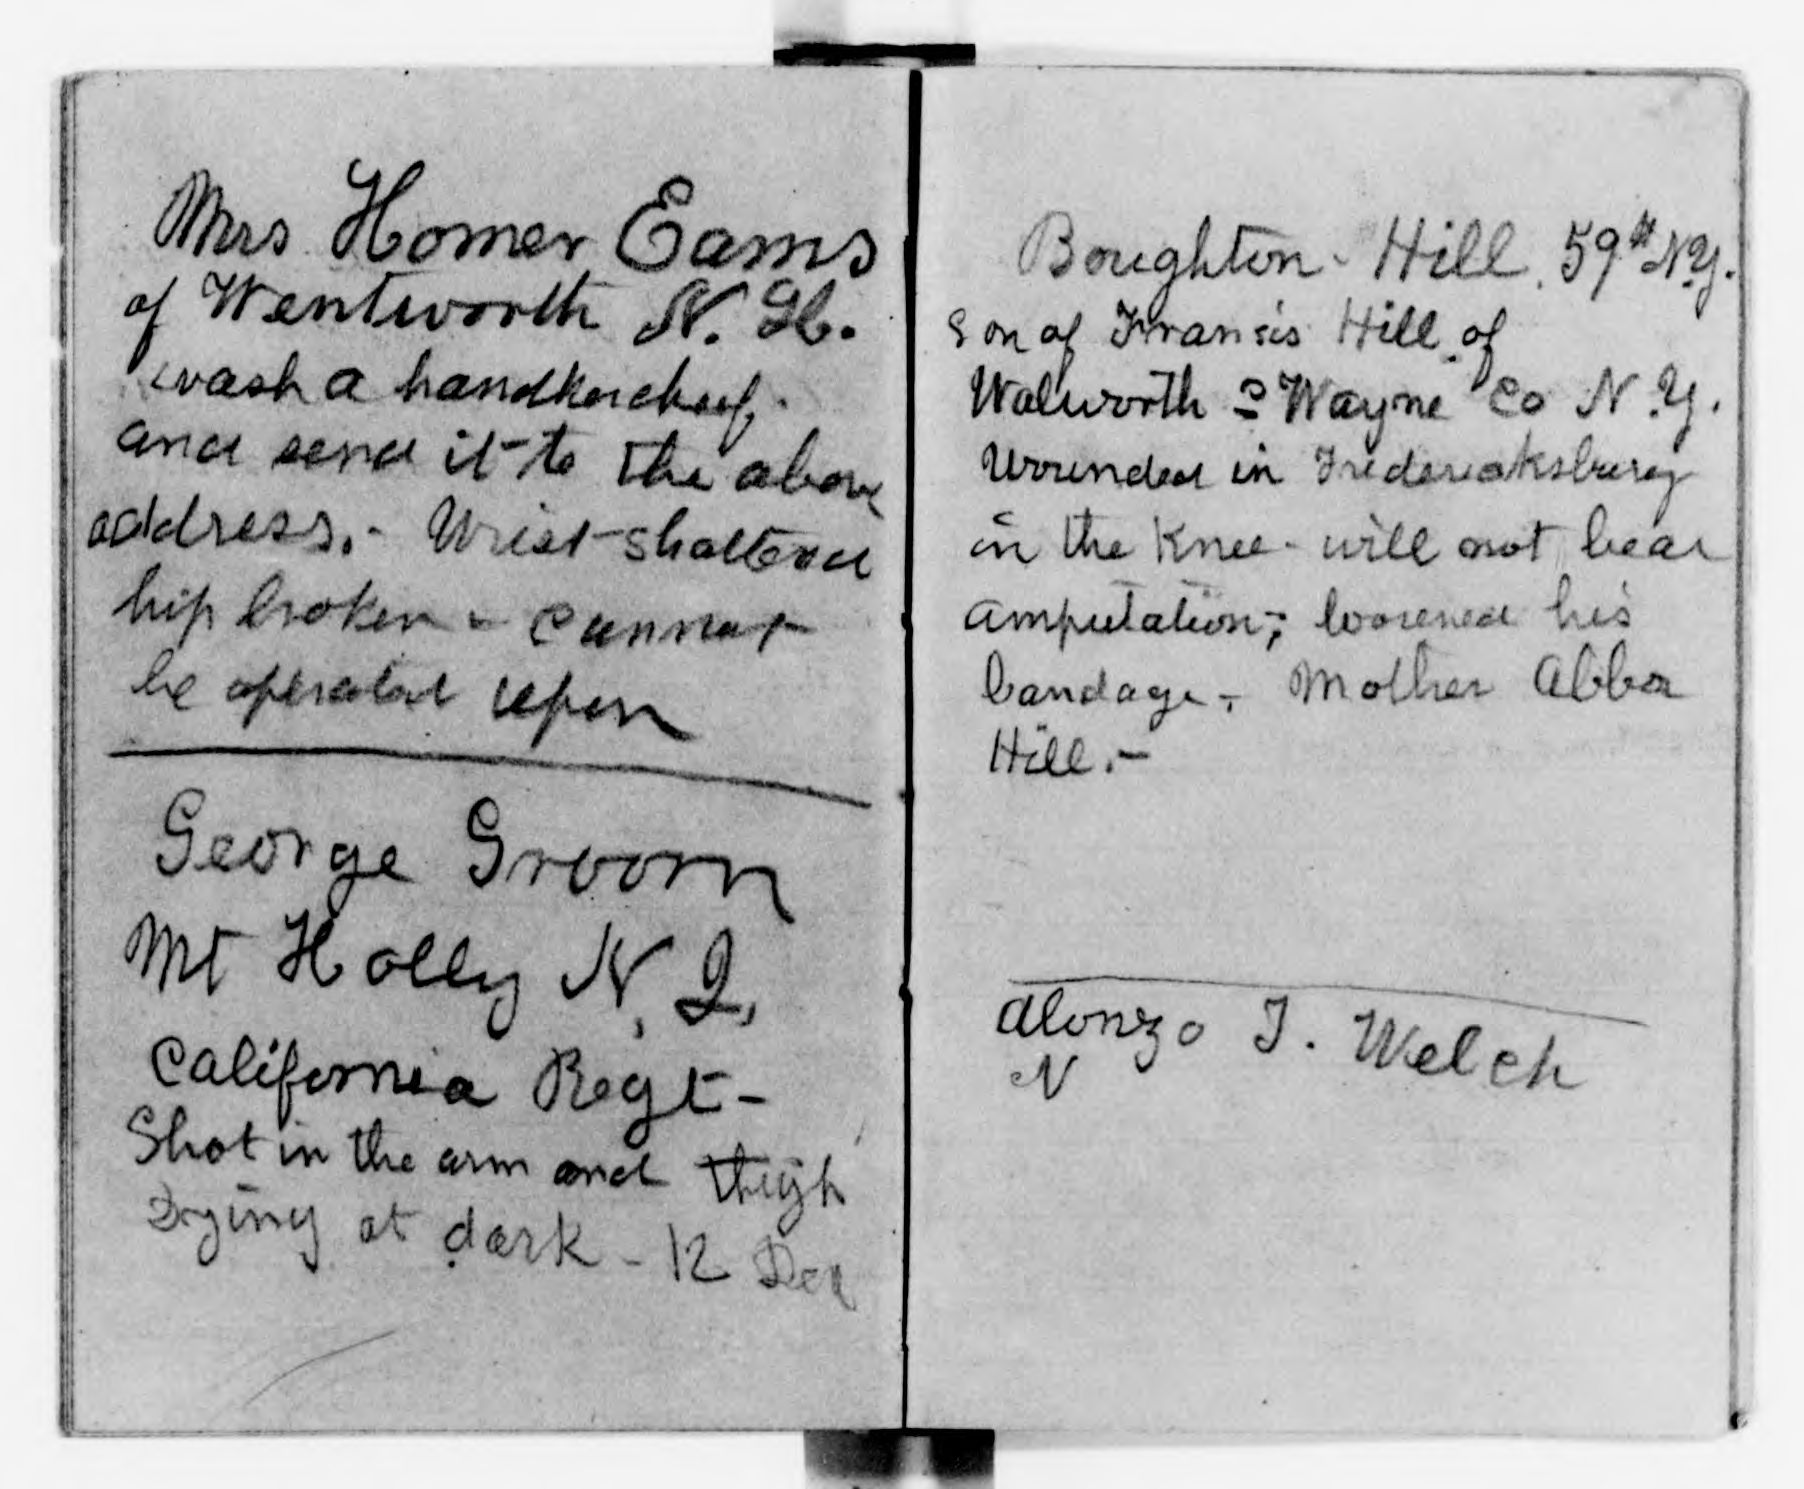 Mrs Homer Eams
of Wentworth N. H.
wash a handkercheif.
and send it to the above
address. - Wrist shattered
hip broken - cannot
be operated upon
George Groom
Mt Holly N, J,
California Regt -
Shot in the arm and thigh
Dying at dark - 12 Dec
Boughton - Hill. 59th N.Y.
Son of Fransis Hill of
Walworth = Wayne Co N.Y.
Wounded in Fredericksburg
in the Knee - will not bear
amputation; loosened his
bandage, - Mother Abba
Hill. -
Alonzo J. Welch
N